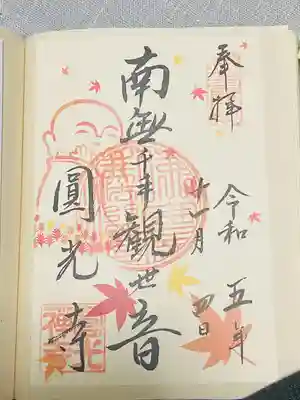 奉拝
令和五年
十一月四日
南無千手観世音
圓光寺